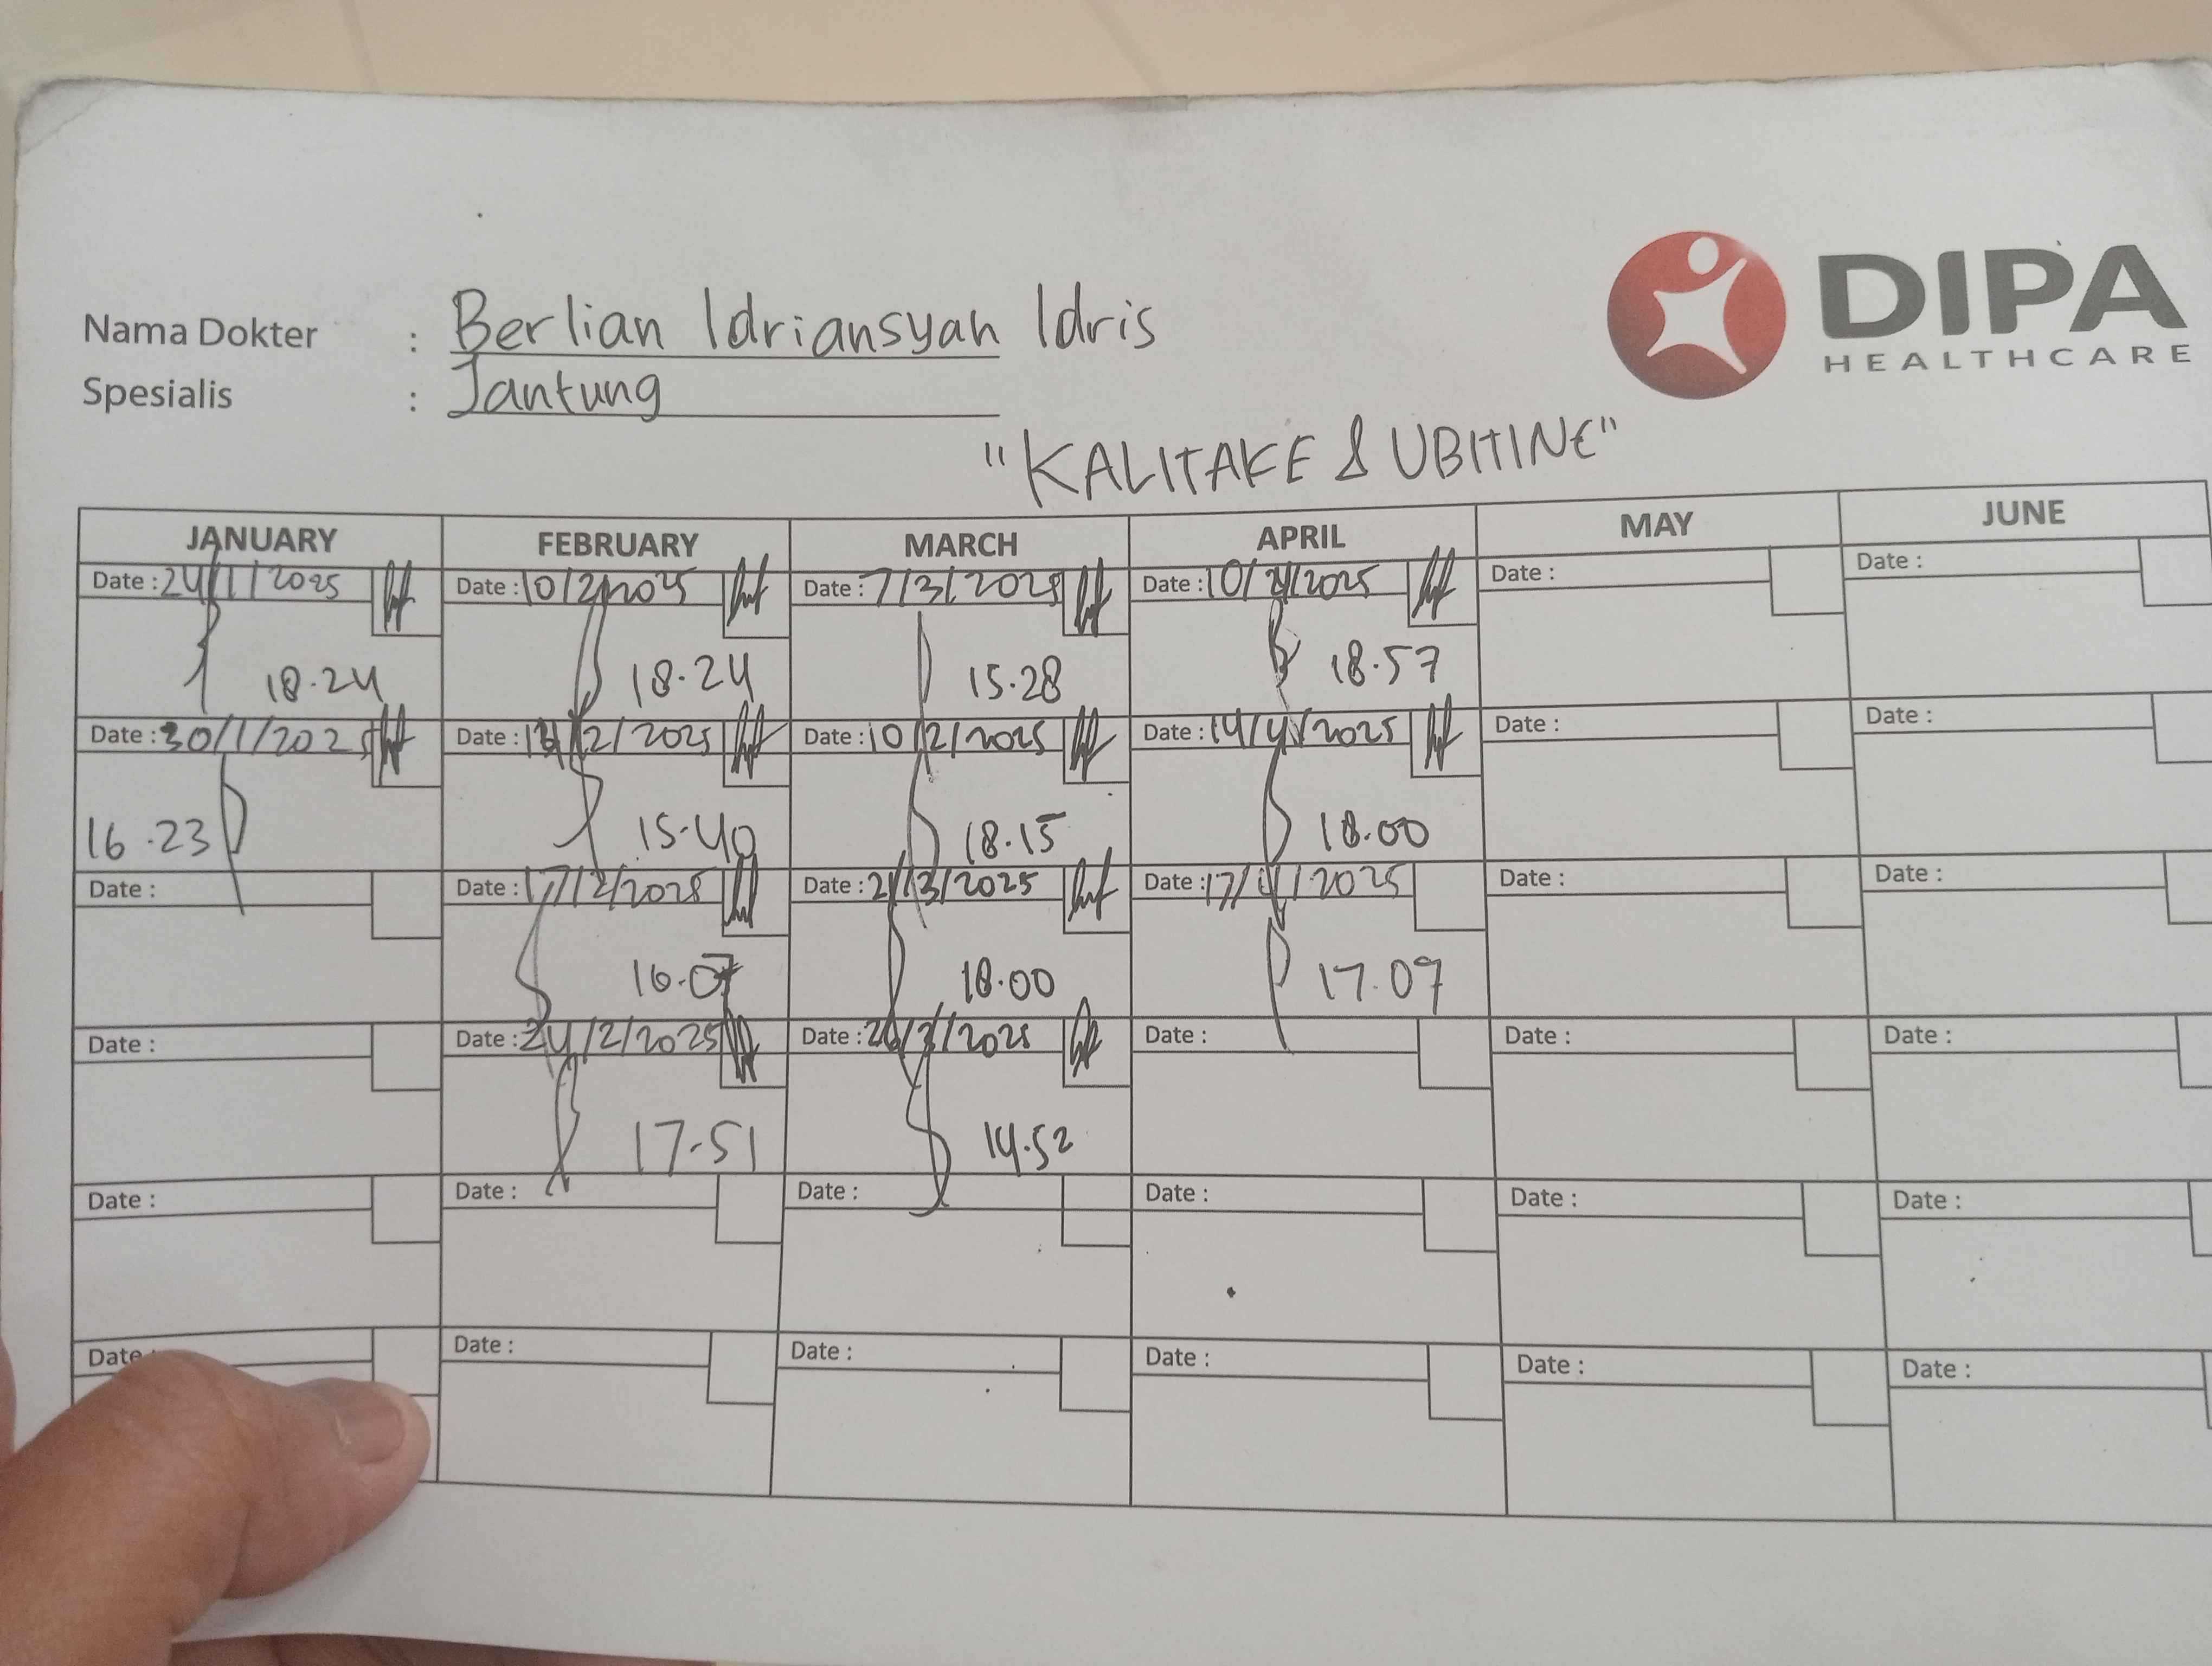 DIPA
HEALTHCARE
Nama Dokter : Berlian Idriansyah Idris
Spesialis : Jantung
"KALITAKE & UBITINE"
JANUARY FEBRUARY MARCH APRIL MAY JUNE
Date : 24/1/2025 Date : 10/2/2025 Date : 7/3/2025 Date : 10/4/2025 Date : Date :
18.24 18.24 15.28 18.57
Date : 30/1/2025 Date : 13/2/2025 Date : 10/2/2025 Date : 14/4/2025 Date : Date :
16.23 15.40 18.15 18.00
Date : Date : 17/2/2025 Date : 21/3/2025 Date : 17/4/2025 Date : Date :
16.07 18.00 17.09
Date : Date : 24/2/2025 Date : 26/3/2025 Date : Date : Date :
17.51 14.52
Date : Date : Date : Date : Date : Date :
Date : Date : Date : Date : Date : Date :